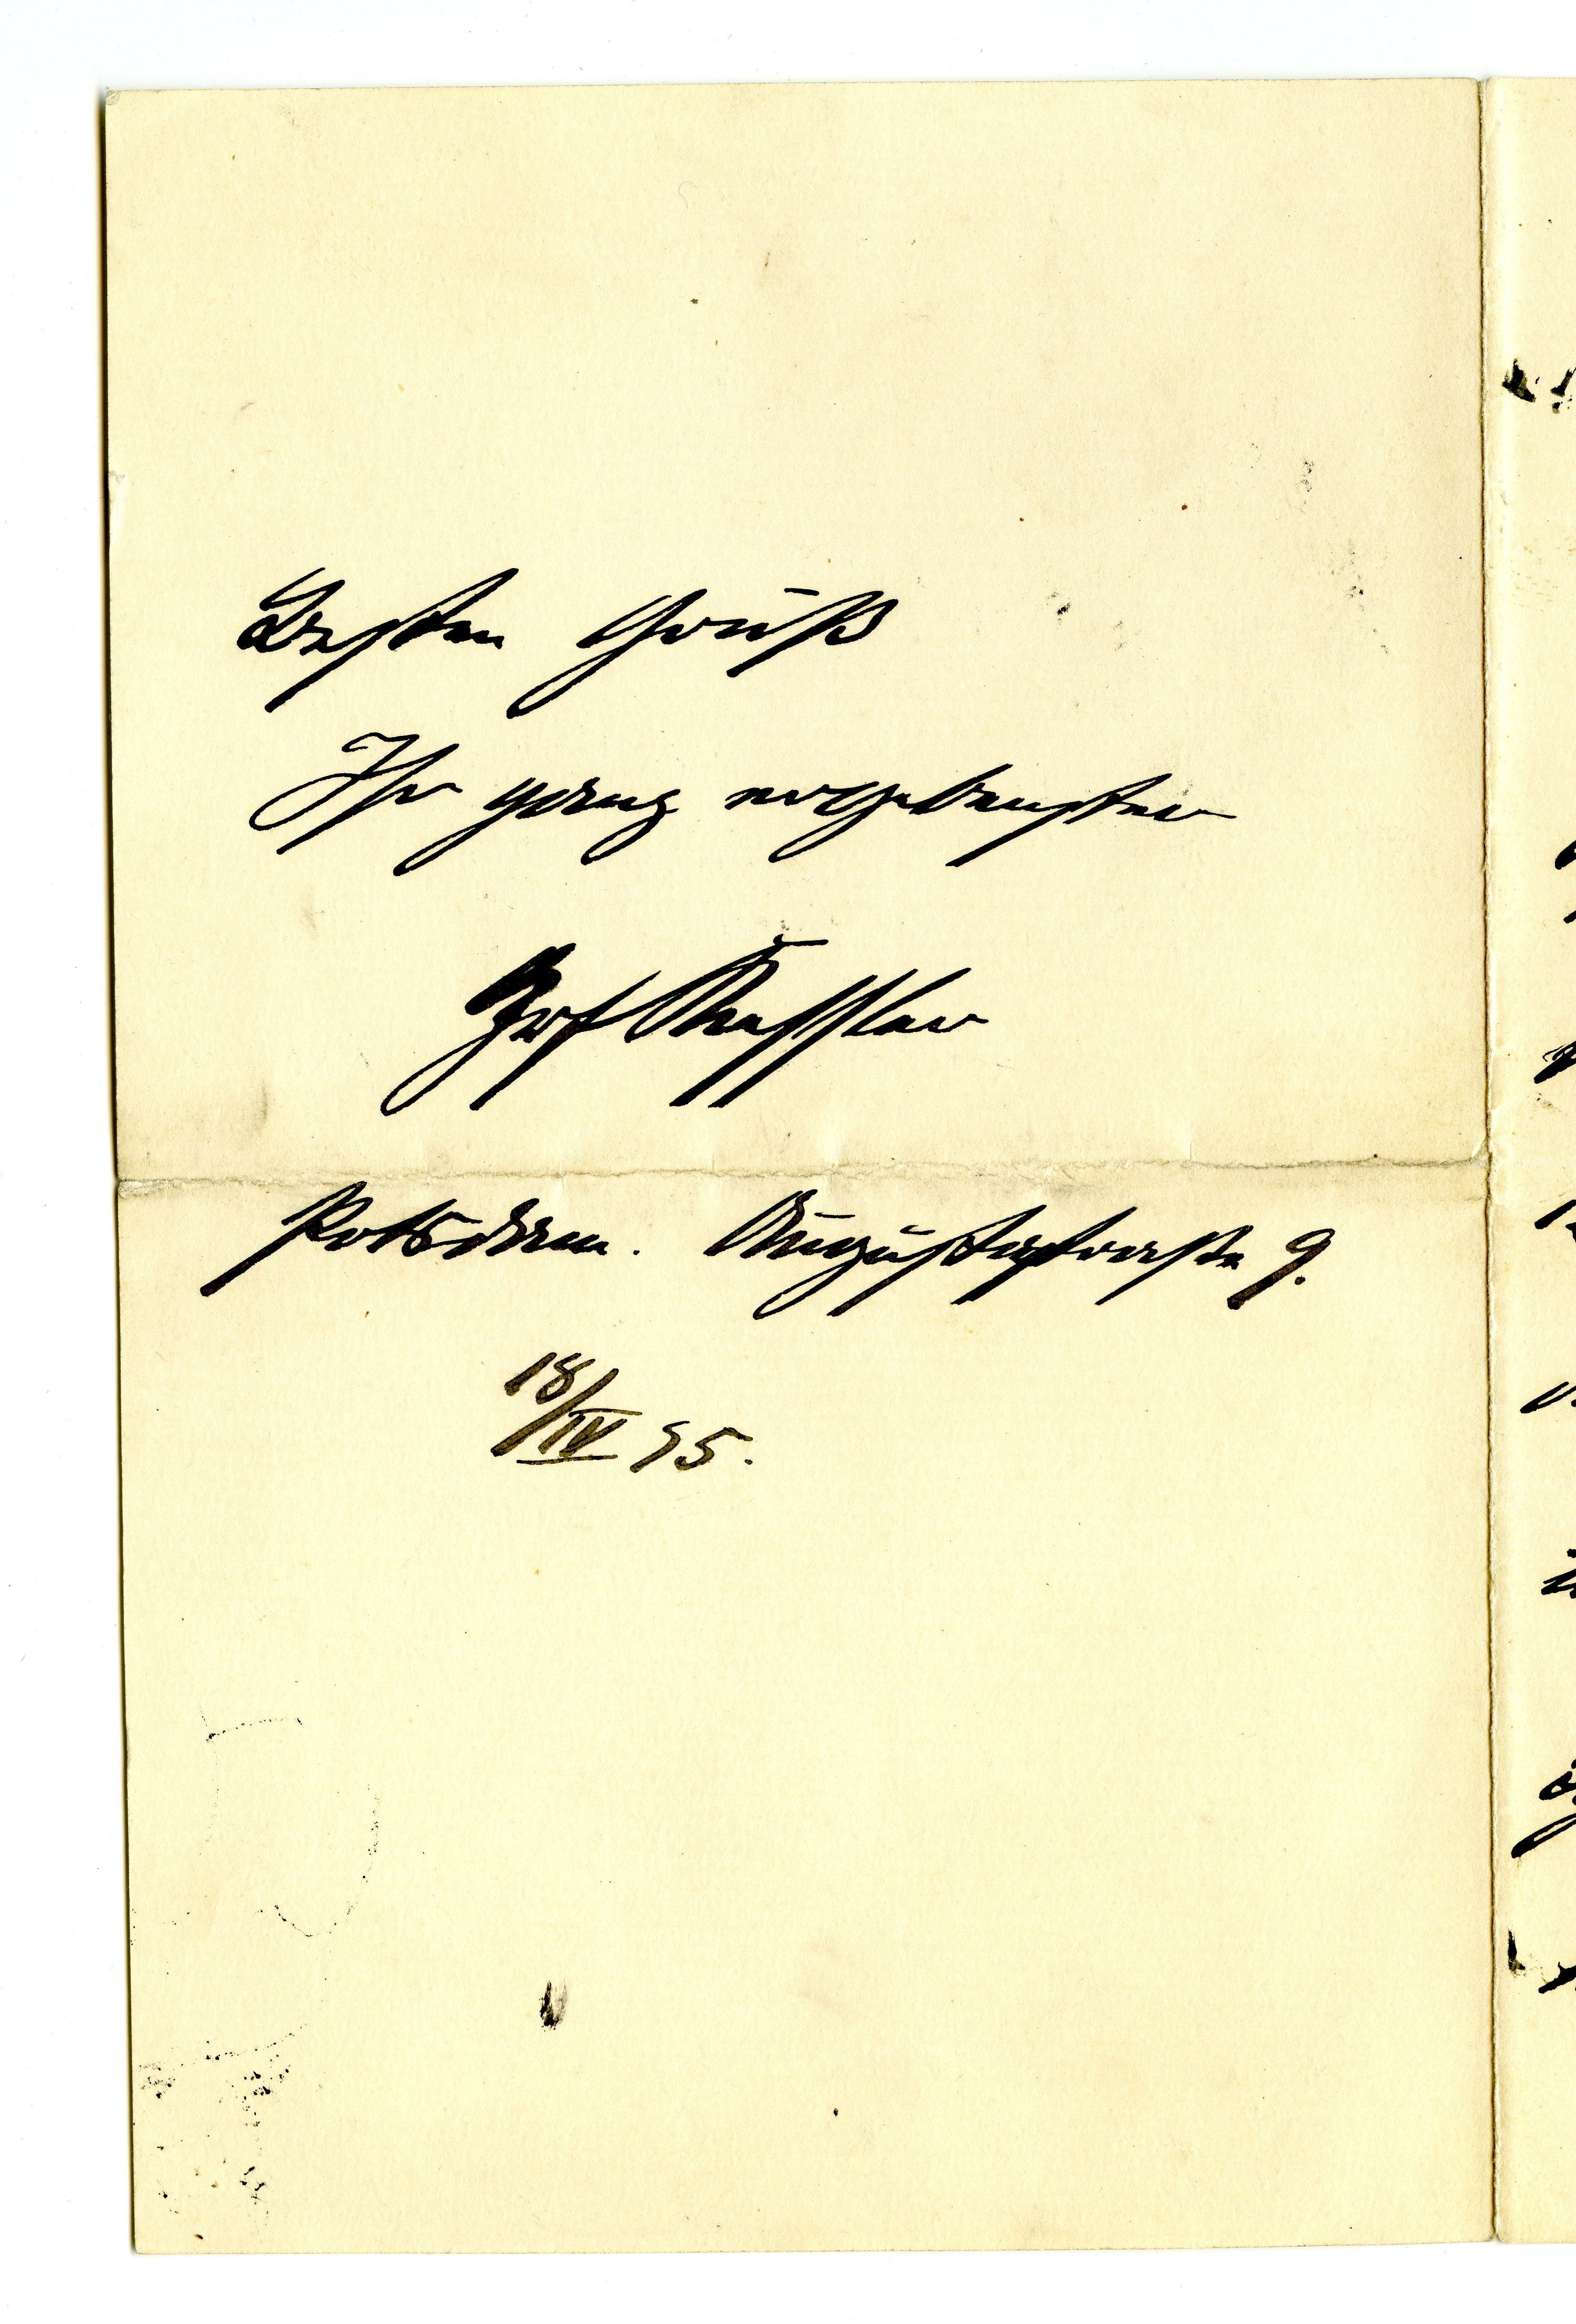 Besten Gruß
Ihr ganz ergebenster
Grf Kessler
Potsdam. Augustastraße 9.
18/IV 95.